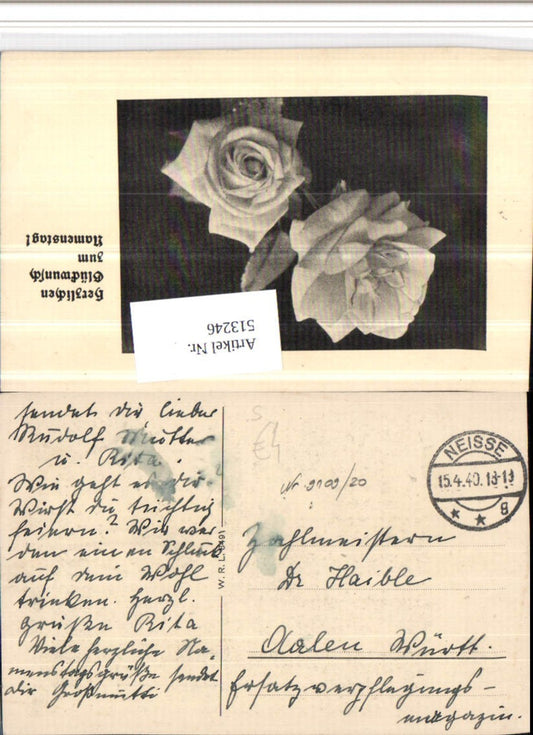 Herzlichen
Glückwunsch
zum
Namenstag!
Artikel Nr.
513246
sendet dir lieber
Rudolf Mutter
u. Rita.
Wie geht es dir?
Wirst du tüchtig
feiern? Wir wer-
den einen Schluck
auf dein Wohl
trinken. Herzl.
Grüße Rita
Viele herzliche Na-
menstagsgrüße sendet
dir Großmutti
W. R. L.
S
€4
Nr 2109/20
NEISSE
15.4.40.18-19
* * g
Zahlmeister
Dr Haible
Aalen Württ.
Ersatzverpflegungs-
magazin.